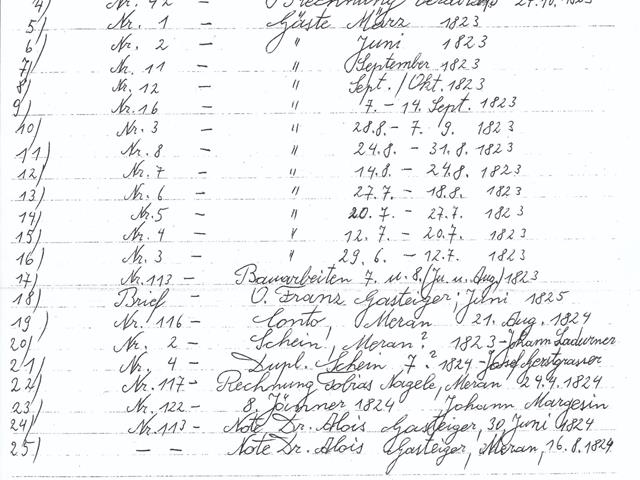 4) Nr. 42 - Rechnung 24.10.1823
5) Nr. 1 - Gäste März 1823
6) Nr. 2 - " Juni 1823
7) Nr. 11 - " September 1823
8) Nr. 12 - " Sept./Okt. 1823
9) Nr. 16 - " 7. - 14. Sept. 1823
10) Nr. 3 - " 28.8. - 7. 9. 1823
11) Nr. 8 - " 24.8. - 31.8. 1823
12) Nr. 7 - " 14.8. - 24.8. 1823
13) Nr. 6 - " 27.7. - 18.8. 1823
14) Nr. 5 - " 20.7. - 27.7. 1823
15) Nr. 4 - " 12.7. - 20.7. 1823
16) Nr. 3 - " 29.6. - 12.7. 1823
17) Nr. 113 - Bauarbeiten 7. u. 8. (Ju. u. Aug.) 1823
18) Brief - O. Franz Gasteiger; Juni 1825
19) Nr. 116 - Conto, Meran 21. Aug. 1824
20) Nr. 2 - Schein, Meran? 1823 - Johann Ladurner
21) Nr. 4 - Dupl. Schein 7? 1824 - Josef Gerstgrasser
22) Nr. 117 - Rechnung Tobias Nägele, Meran 24.4.1824
23) Nr. 122 - 8. Jänner 1824 Johann Margesin
24) Nr. 113 - Note Dr. Alois Gasteiger, 30. Juni 1824
25) - - Note Dr. Alois Gasteiger, Meran, 16.8.1824